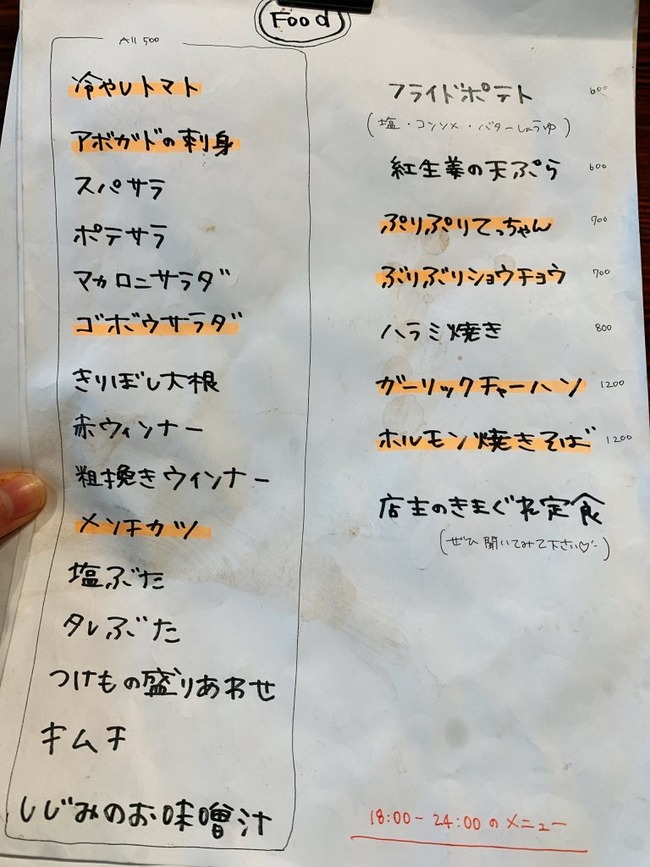 Food
All 500
冷やしトマト
アボガドの刺身
スパサラ
ポテサラ
マカロニサラダ
ゴボウサラダ
きりぼし大根
赤ウィンナー
粗挽きウィンナー
メンチカツ
塩ぶた
タレぶた
つけもの盛りあわせ
キムチ
しじみのお味噌汁
フライドポテト 600
(塩・コンソメ・バターしょうゆ)
紅生姜の天ぷら 600
ぷりぷりてっちゃん 700
ぶりぶりショウチョウ 700
ハラミ焼き 800
ガーリックチャーハン 1200
ホルモン焼きそば 1200
店主のきまぐれ定食
(ぜひ聞いてみて下さい♡)
18:00-24:00のメニュー